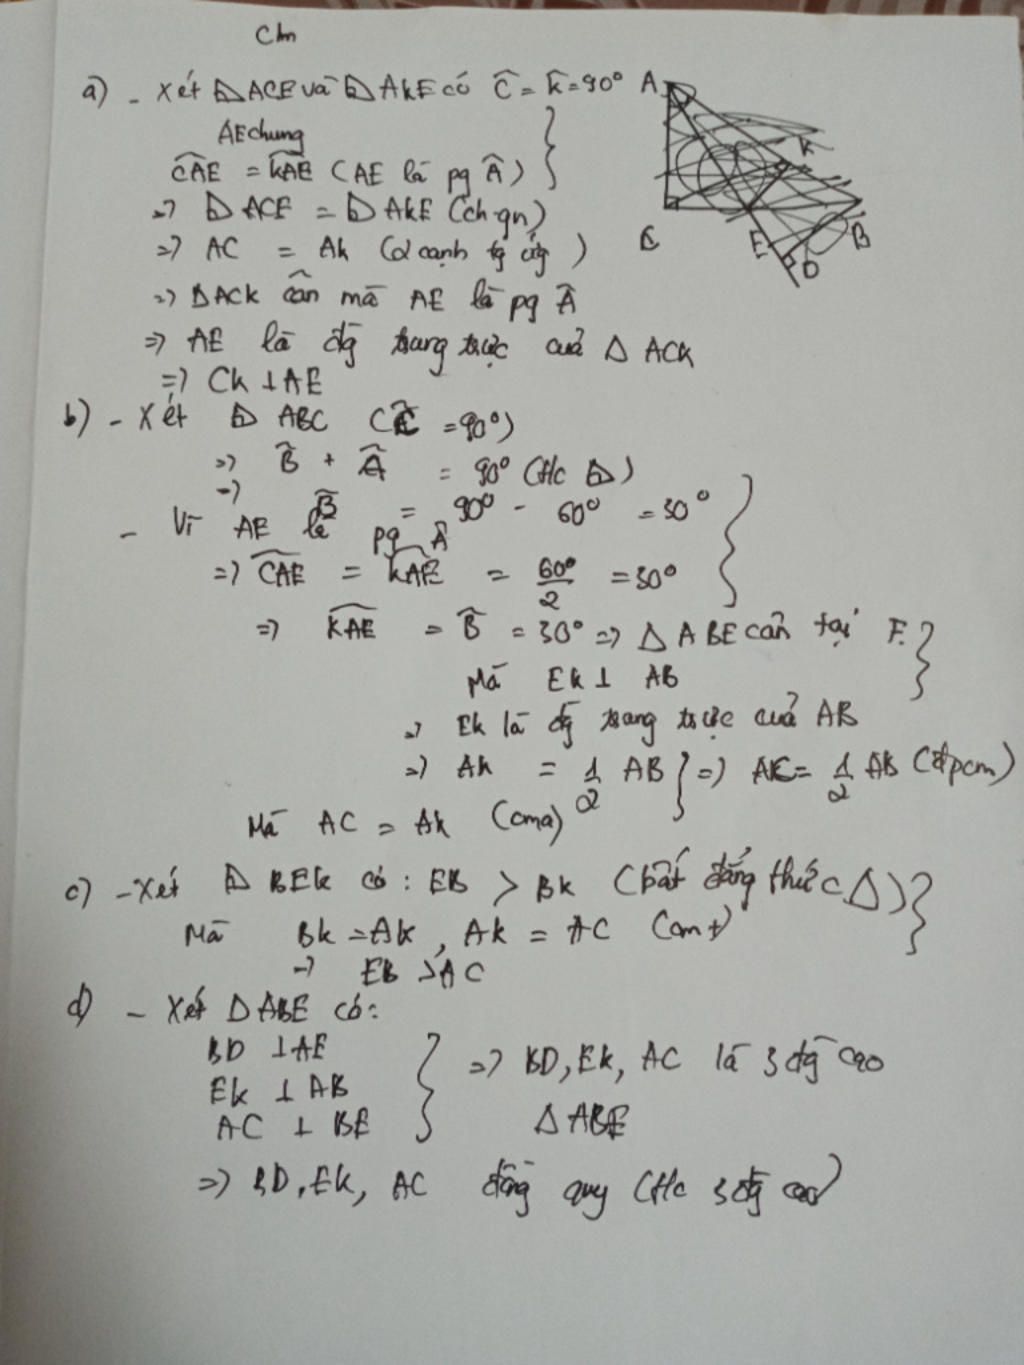 Cm
a) - Xét ⊿ACE và ⊿AKE có Ĉ = K̂ = 90°
AE chung
CAE = KAE (AE là pg Â)
=> ⊿ACE = ⊿AKE (ch-gn)
=> AC = AK (2 cạnh tg ứg)
=> ΔACK cân mà AE là pg Â
=> AE là đg trung trực của Δ ACK
=> CK ⊥ AE
A
K
C
E
B
D
b) - Xét ⊿ ABC (Ĉ = 90°)
=> B̂ + Â = 90° (Hc ⊿)
=> B̂ = 90° - 60° = 30°
- Vì AE là pg Â
=> CAE = KAE = 60°/2 = 30°
=> KAE = B̂ = 30° => Δ ABE cân tại E
Mà EK ⊥ AB
=> EK là đg trung trực của AB
=> AK = 1/2 AB } => AC = 1/2 AB (đpcm)
Mà AC = AK (cma)
c) - Xét ⊿ BEK có : EB > BK (bất đẳng thức Δ)
Mà BK = AK, AK = AC (cmt)
=> EB > AC
d) - Xét ΔABE có:
BD ⊥ AE
EK ⊥ AB
AC ⊥ BE
=> BD, EK, AC là 3 đg cao
Δ ABE
=> BD, EK, AC đồng quy (Hc 3 đg cao)